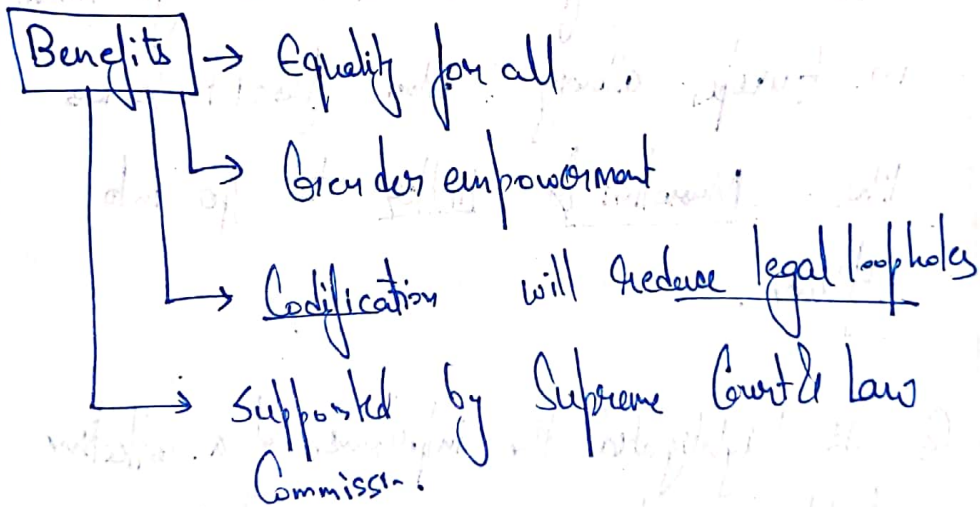 Benefits → Equality for all
→ Gender empowerment.
→ Codification will reduce legal loopholes
→ supported by Supreme Court & Law
Commission.